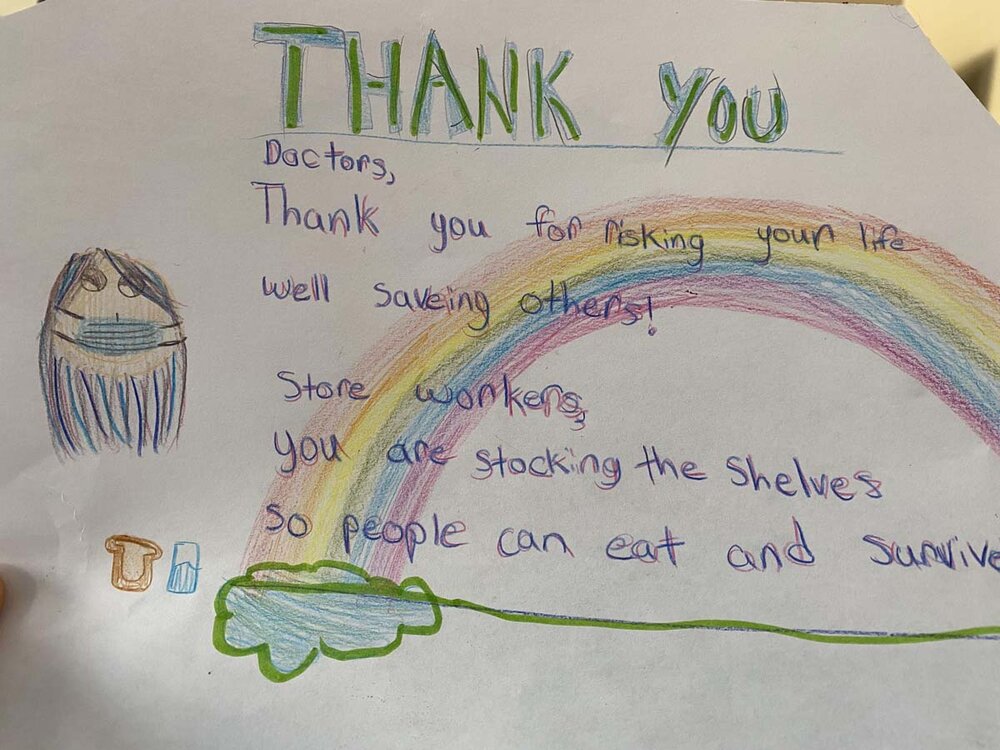 THANK YOU
Doctors,
Thank you for risking your life
well saveing others!
Store workers,
you are stocking the shelves
so people can eat and survive